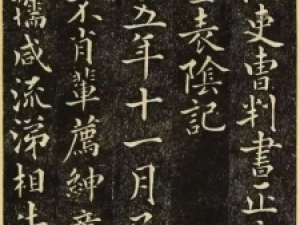 吏曹判書正
表陰記
五年十一月
不肖輩薦紳
咸流涕相